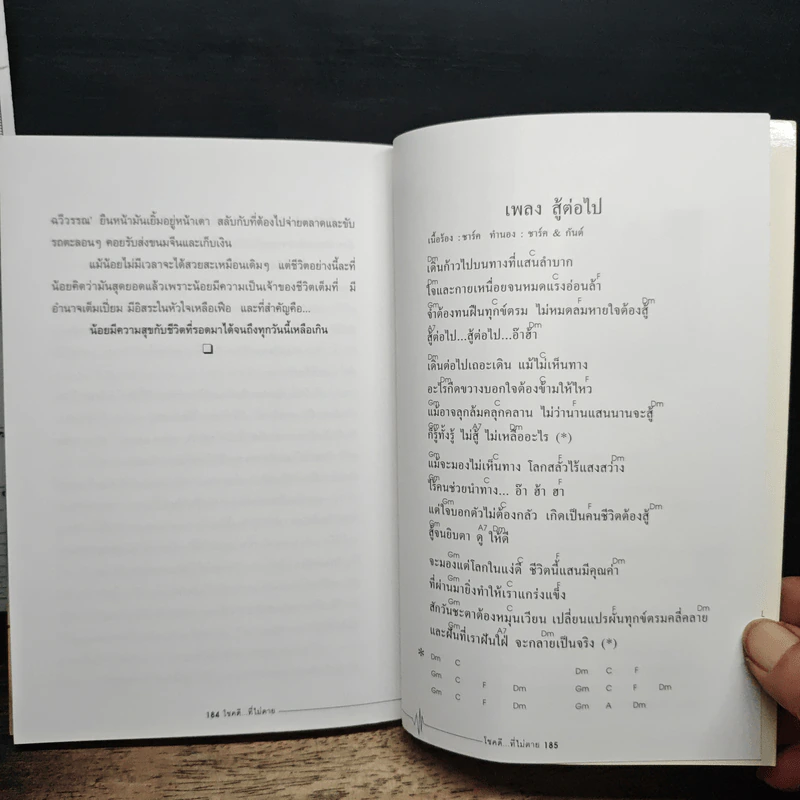 ฉวีวรรณ' ยืนหน้ามันเยิ้มอยู่หน้าเตา สลับกับที่ต้องไปจ่ายตลาดและขับ
รถตะลอนๆ คอยรับส่งขนมจีนและเก็บเงิน
แม้น้อยไม่มีเวลาจะได้สวยสะเหมือนเดิมๆ แต่ชีวิตอย่างนี้ละที่
น้อยคิดว่ามันสุดยอดแล้วเพราะน้อยมีความเป็นเจ้าของชีวิตเต็มที่ มี
อำนาจเต็มเปี่ยม มีอิสระในหัวใจเหลือเฟือ และที่สำคัญคือ...
น้อยมีความสุขกับชีวิตที่รอดมาได้จนถึงทุกวันนี้เหลือเกิน
❑
184 โชคดี...ที่ไม่ตาย
เพลง สู้ต่อไป
เนื้อร้อง : ชาร์ค ทำนอง : ชาร์ค & กันต์
Dm C
เดินก้าวไปบนทางที่แสนลำบาก
Gm C F
ใจและกายเหนื่อยจนหมดแรงอ่อนล้า
Gm C F Dm
จำต้องทนฝืนทุกข์ตรม ไม่หมดลมหายใจต้องสู้
A7
สู้ต่อไป...สู้ต่อไป...อ๊าฮ้า
Dm C
เดินต่อไปเถอะเดิน แม้ไม่เห็นทาง
Dm C F
อะไรกีดขวางบอกใจต้องข้ามให้ไหว
Gm C F Dm
แม้อาจลุกล้มคลุกคลาน ไม่ว่านานแสนนานจะสู้
Gm A7 Dm
ก็รู้ทั้งรู้ ไม่สู้ ไม่เหลืออะไร (*)
Gm C F Dm
แม้จะมองไม่เห็นทาง โลกสลัวไร้แสงสว่าง
Gm C F
ไร้คนช่วยนำทาง... อ๊า ฮ้า ฮา
Gm C F Dm
แต่ใจบอกตัวไม่ต้องกลัว เกิดเป็นคนชีวิตต้องสู้
Gm A7 Dm
สู้จนยิบตา ดู ให้ดี
Gm C F Dm
จะมองแต่โลกในแง่ดี ชีวิตนี้แสนมีคุณค่า
Gm C F
ที่ผ่านมายิ่งทำให้เราแกร่งแข็ง
Gm C F Dm
สักวันชะตาต้องหมุนเวียน เปลี่ยนแปรผันทุกข์ตรมคลี่คลาย
Gm A7 Dm
และฝันที่เราฝันใฝ่ จะกลายเป็นจริง (*)
* Dm C Dm C F
Gm C F Dm Gm C F Dm
Gm C F Dm Gm A Dm
โชคดี...ที่ไม่ตาย 185